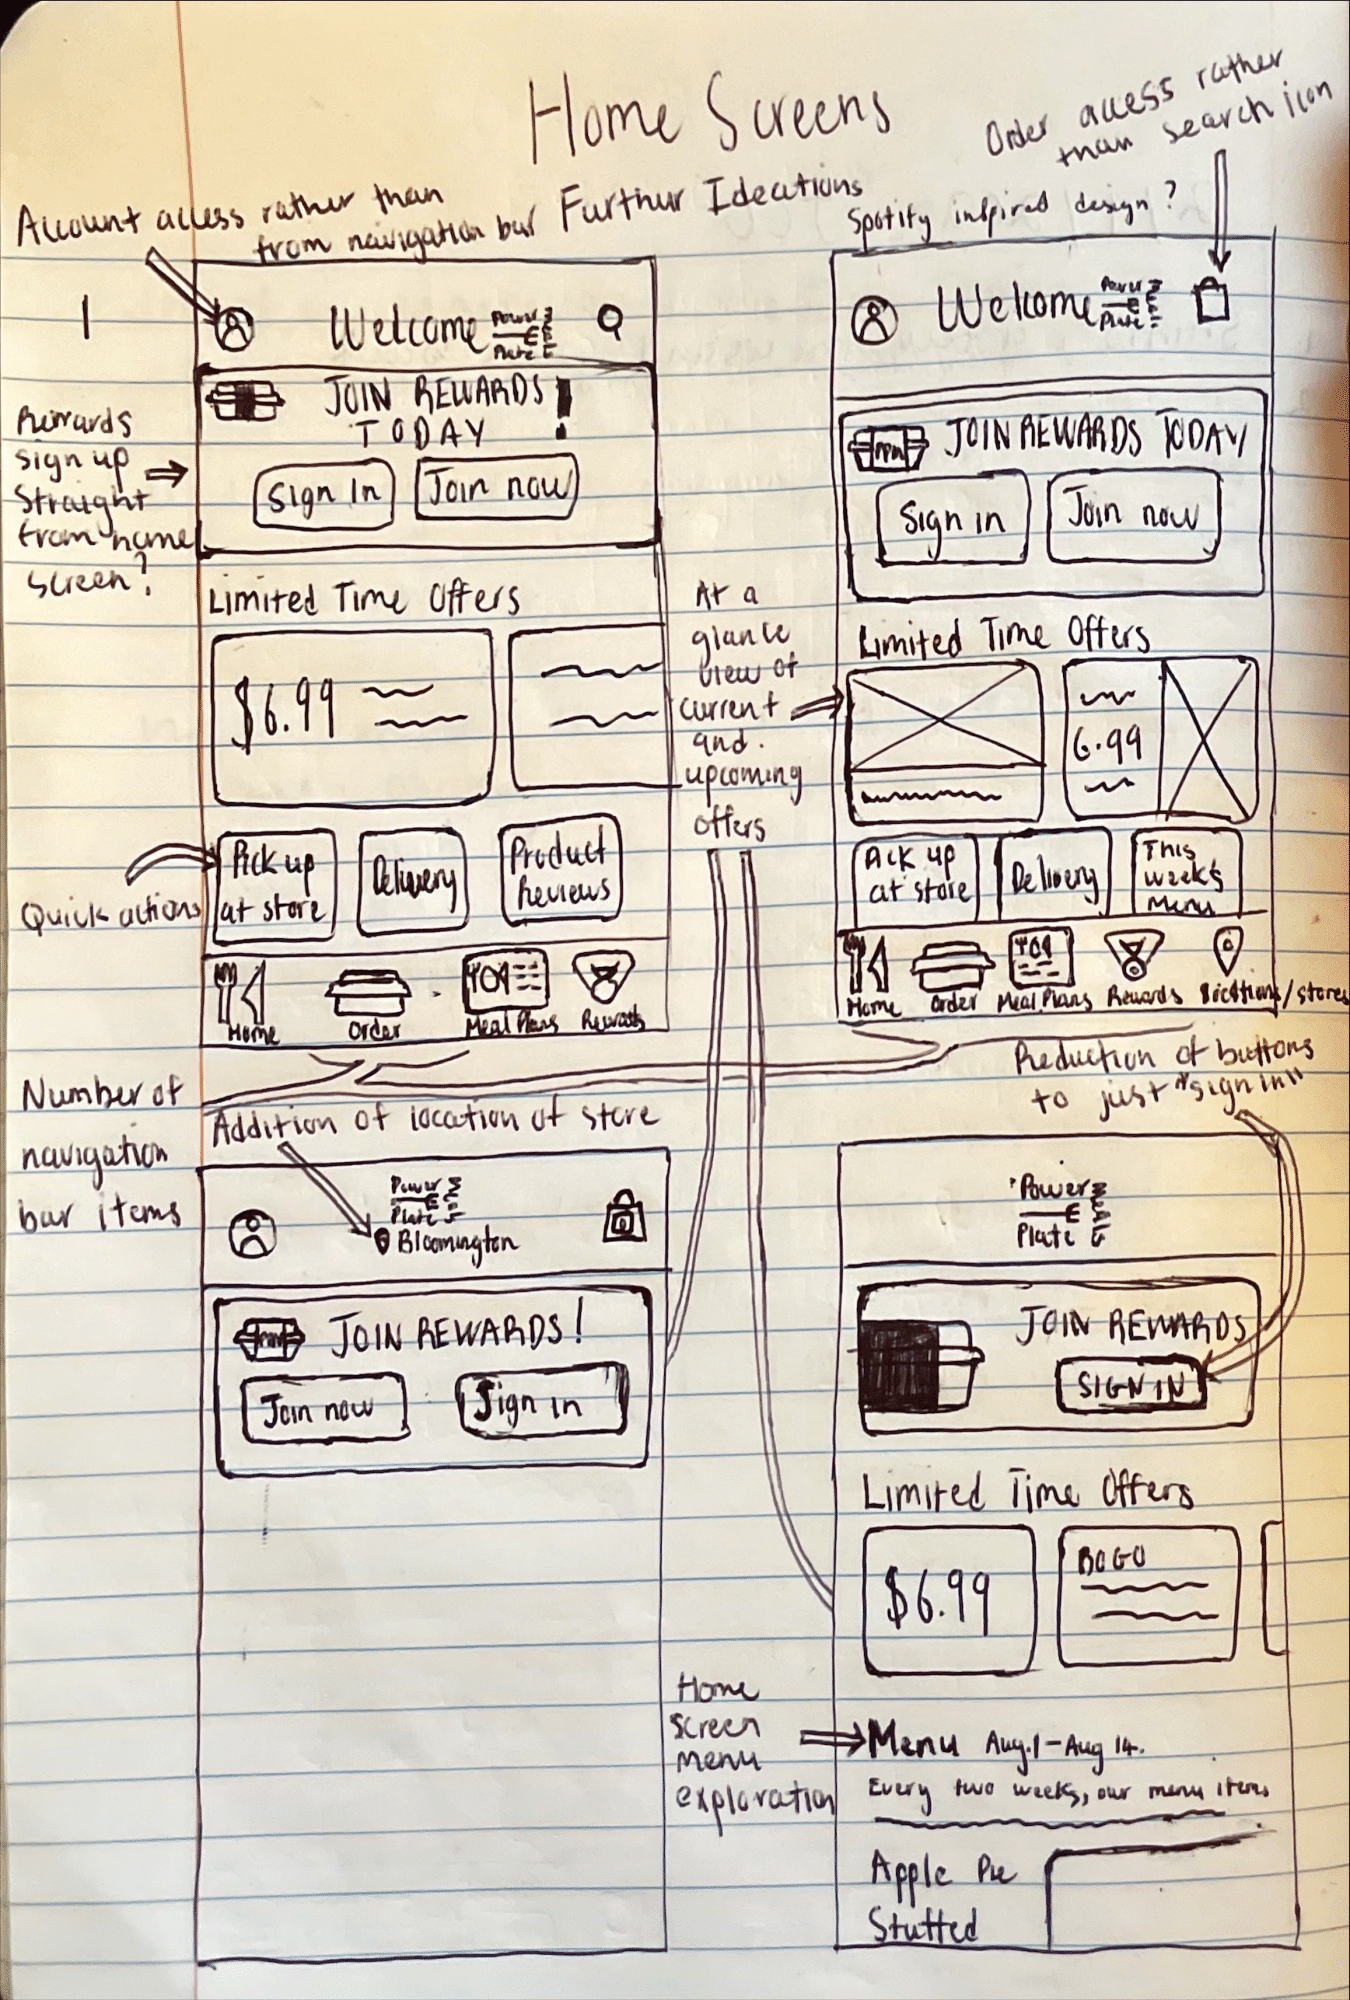 Home Screens
Furthur Ideations
Order access rather
than search icon
Account access rather than
from navigation bar
Spotify inspired design?
1
Welcome
Power
Plate
JOIN REWARDS!
TODAY
Sign In
Join now
Rewards
sign up
straight
from home
screen?
Limited Time Offers
$6.99
Quick actions
Pick up
at store
Delivery
Product
Reviews
Home
Order
Meal Plans
Rewards
At a
glance
view of
current
and
upcoming
offers
Welcome
Power
Plate
JOIN REWARDS TODAY
Sign in
Join now
Limited Time Offers
6.99
Pick up
at store
Delivery
This
week's
Menu
Home
Order
Meal Plans
Rewards
locations/stores
Number of
navigation
bar items
Addition of location of store
Power
Plate
Bloomington
JOIN REWARDS!
Join now
Sign in
Reduction of buttons
to just "sign in"
Power
Plate
JOIN REWARDS
SIGN IN
Limited Time Offers
$6.99
BOGO
Home
screen
menu
exploration
Menu Aug.1-Aug 14.
Every two weeks, our menu items
Apple Pie
Stuffed